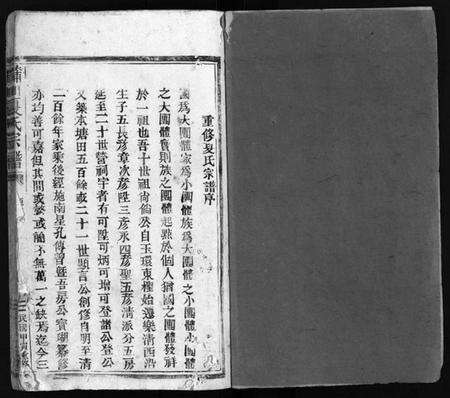 重修夏氏宗譜序
國爲大團體家爲小團體族爲大團體之小團體小團體
之大團體實則族之團體起點於個人猶國之團體發祥
於一祖也吾十世祖尚綸公自玉環東楗始遷樂清西沿
生子五長彥章次彥陞三彥承四彥聖五彥清派分五房
延至二十世營祠宇者有可陞可炳可增可登諸公登公
又築水塘田五百餘畝二十一世顯言公創修自明至清
二百餘年家乘後經施南星孔傳曾暨吾房公寶瑚纂修
亦均善可嘉但其間或繁或簡不無萬一之缺焉迄今三
夏氏宗譜
民國甲申